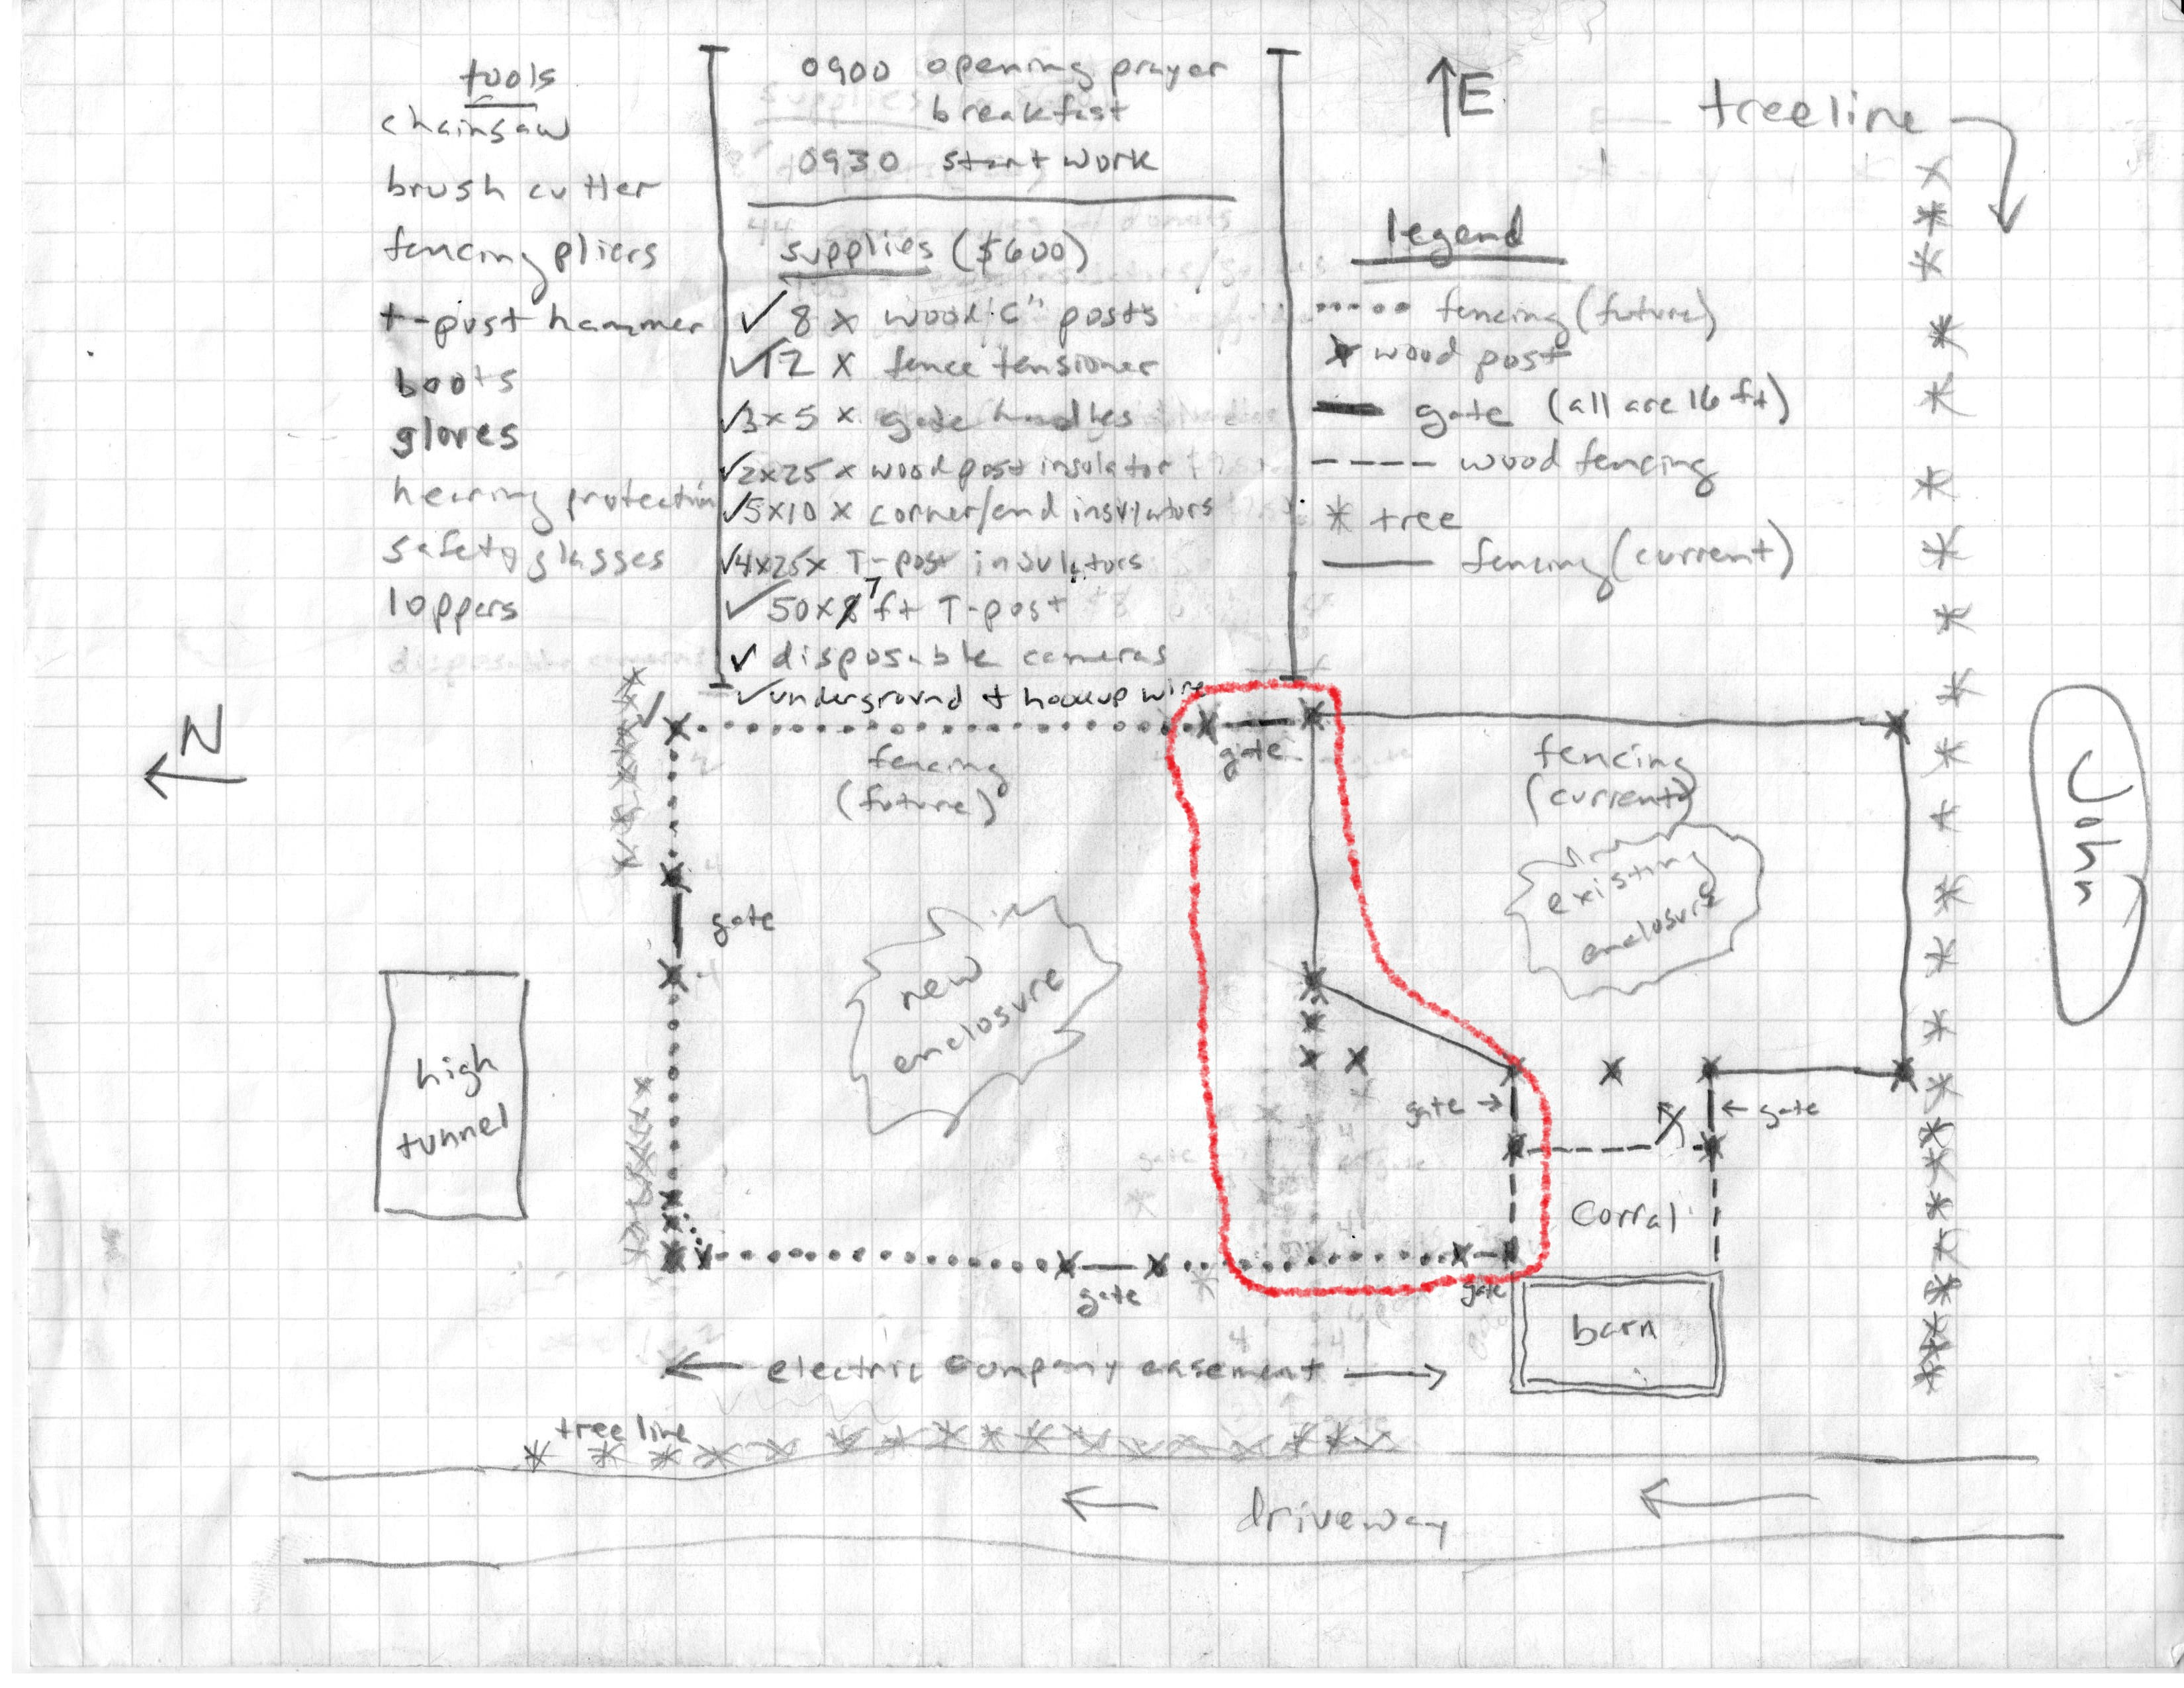 tools
chainsaw
brush cutter
fencing pliers
t-post hammer
boots
gloves
hearing protection
safety glasses
loppers
0900 opening prayer
breakfast
0930 start work
supplies ($600)
✓ 8 x wood 6" posts
✓ 12 x fence tensioner
✓ 3x5 x gate handles
✓ 2x25 x wood post insulator
✓ 5x10 x corner/end insulators
✓ 4x25x T-post insulators
✓ 50x 7 ft T-post
✓ disposable cameras
✓ underground + hookup wire
↑E
treeline
legend
fencing (future)
wood post
gate (all are 16 ft)
wood fencing
tree
fencing (current)
N
John
gate
fencing
(future)
fencing
(current)
existing
enclosure
gate
new
enclosure
high
tunnel
gate →
← gate
corral
gate
gate
barn
← electric company easement →
tree line
← driveway ←